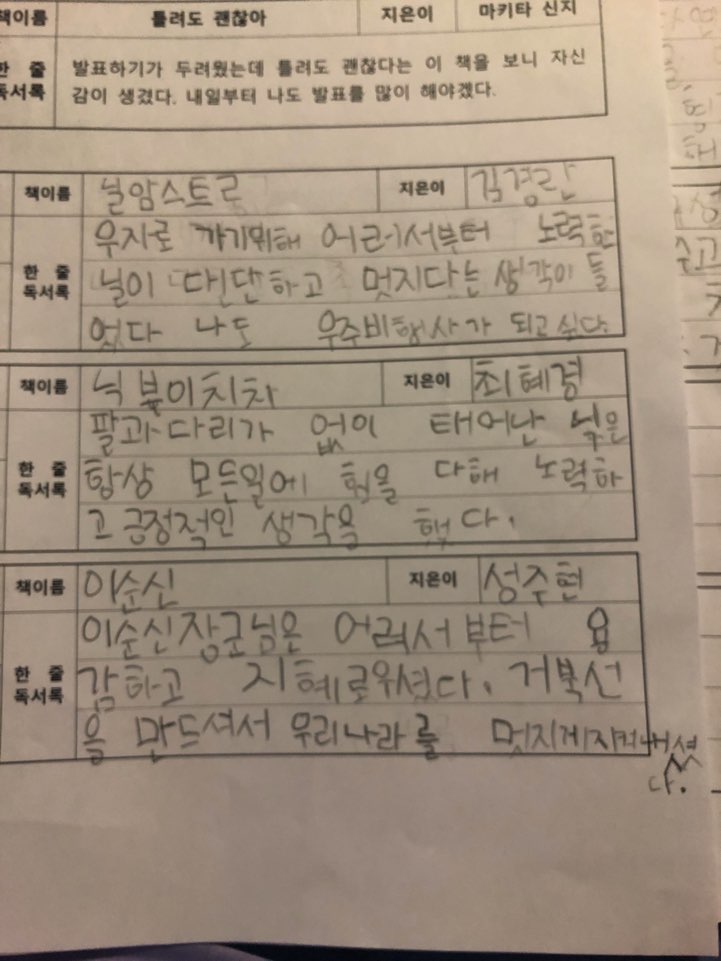 책이름 틀려도 괜찮아 지은이 마키타 신지
한 줄 독서록
발표하기가 두려웠는데 틀려도 괜찮다는 이 책을 보니 자신
감이 생겼다. 내일부터 나도 발표를 많이 해야겠다.
책이름 닐암스트로 지은이 김경란
한 줄 독서록
우지로 가기위해 어려서부터 노력한
닐이 대단하고 멋지다는 생각이 들
었다 나도 우주비행사가 되고싶다.
책이름 닉 붖이치차 지은이 최혜경
한 줄 독서록
팔과다리가 없이 태어난 닉은
항상 모든일에 힘을 다해 노력하
고 긍정적인 생각을 했다.
책이름 이순신 지은이 성주현
한 줄 독서록
이순신장군님은 어려서부터 용
감하고 지혜로우셨다. 거북선
을 만드셔서 우리나라를 멋지게지켜내셨
다.